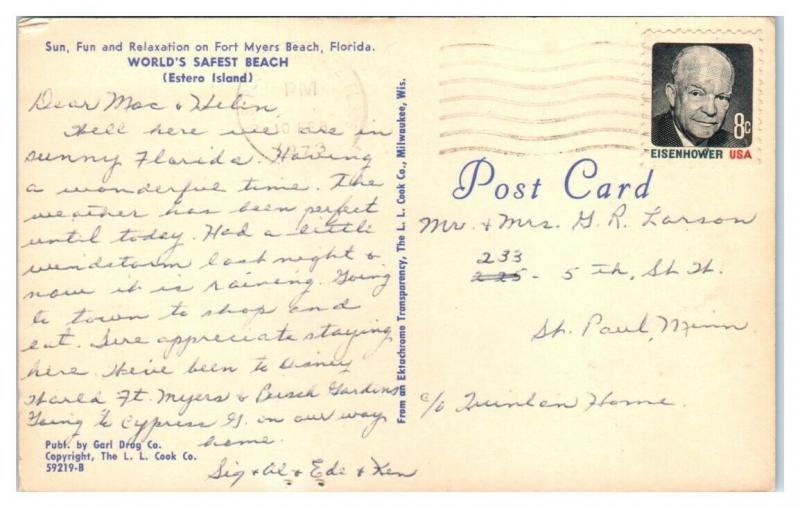 Sun, Fun and Relaxation on Fort Myers Beach, Florida.
WORLD'S SAFEST BEACH
(Estero Island)
Dear Mac & Helin
Well here we are in
sunny Florida. Having
a wonderful time. The
weather has been perfect
until today. Had a little
windstorm last night &
now it is raining. Going
to town to shop and
eat. Sure appreciate staying
here. Have been to Disney
World Ft. Myers & Busch Gardens
Going to Cypress G. on our way
home.
Sig & Al & Ede & Ken
Publ. by Garl Drug Co.
Copyright, The L. L. Cook Co.
59219-B
From an Ektachrome Transparency, The L. L. Cook Co., Milwaukee, Wis.
PM
1973
8c
EISENHOWER USA
Post Card
Mr. & Mrs. G. R. Larson
233
225 - 5th. St. W.
St. Paul, Minn
c/o Quinlan Home.